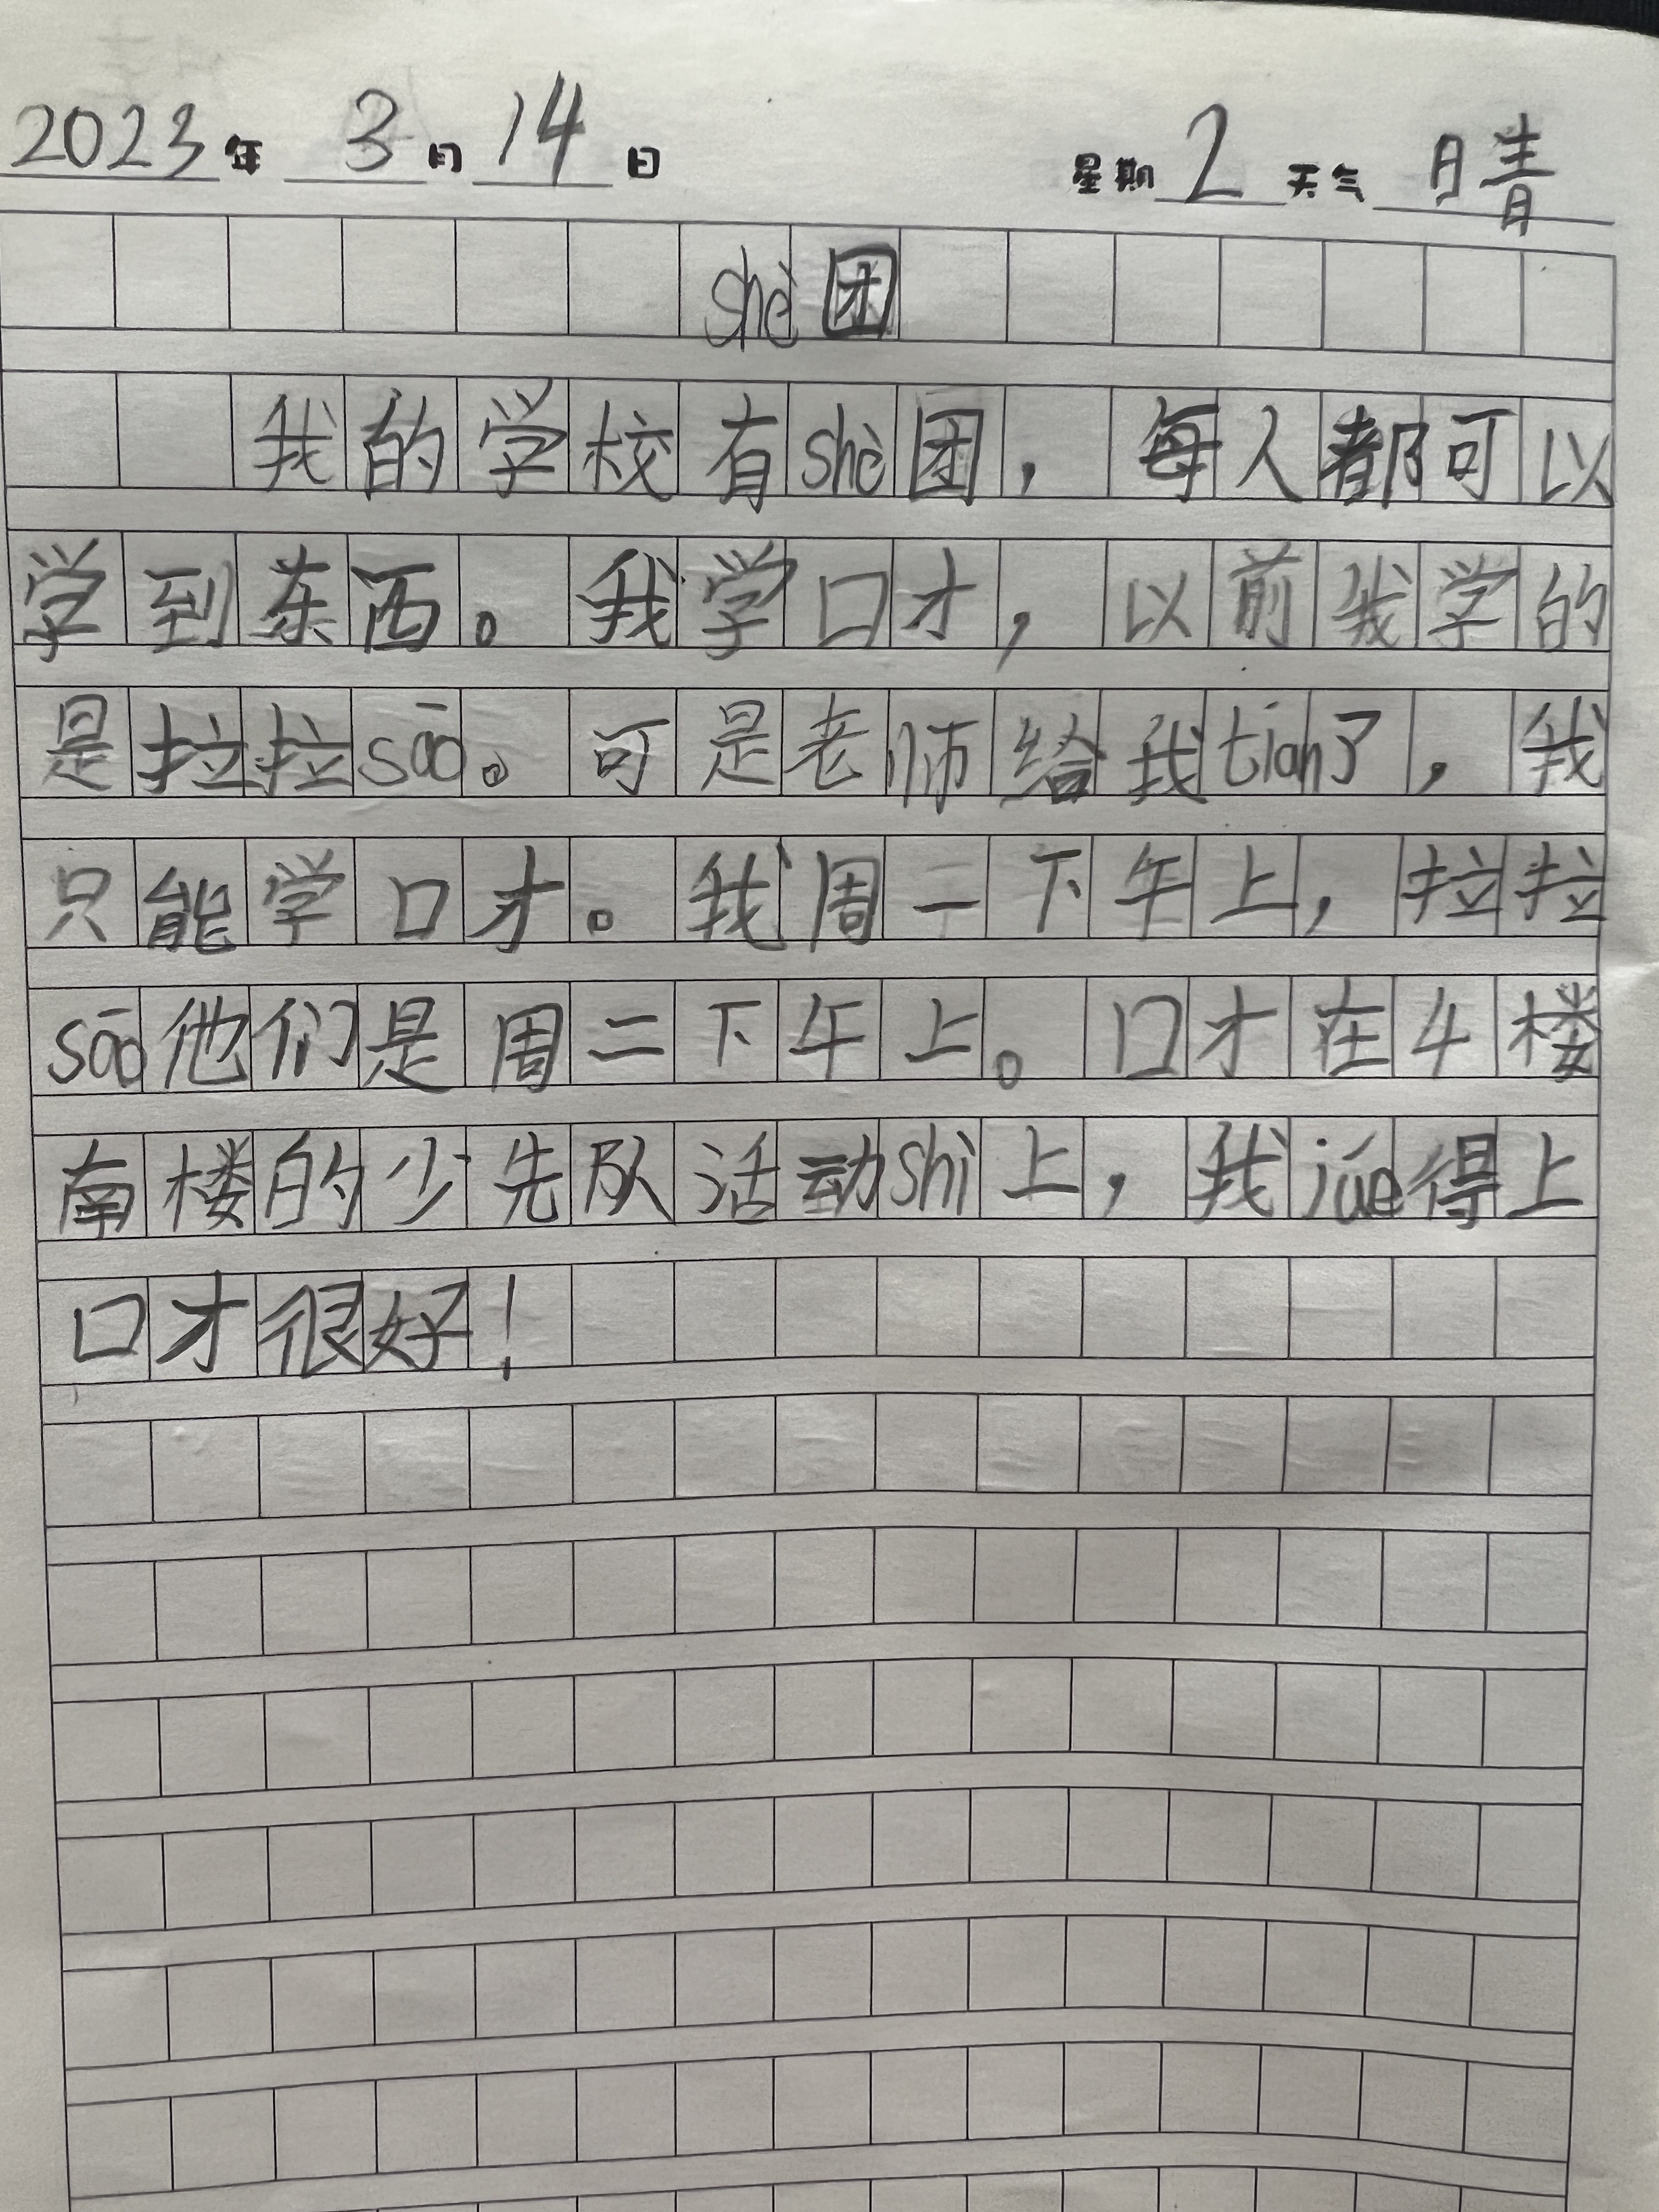 2023年 3月 14日 星期 2 天气 晴
shè团
我的学校有shè团，每人都可以
学到东西。我学口才，以前我学的
是拉拉sāo。可是老师给我tián了，我
只能学口才。我周二下午上，拉拉
sāo他们是周二下午上。口才在4楼
南楼的少先队活动shì上，我júe得上
口才很好！